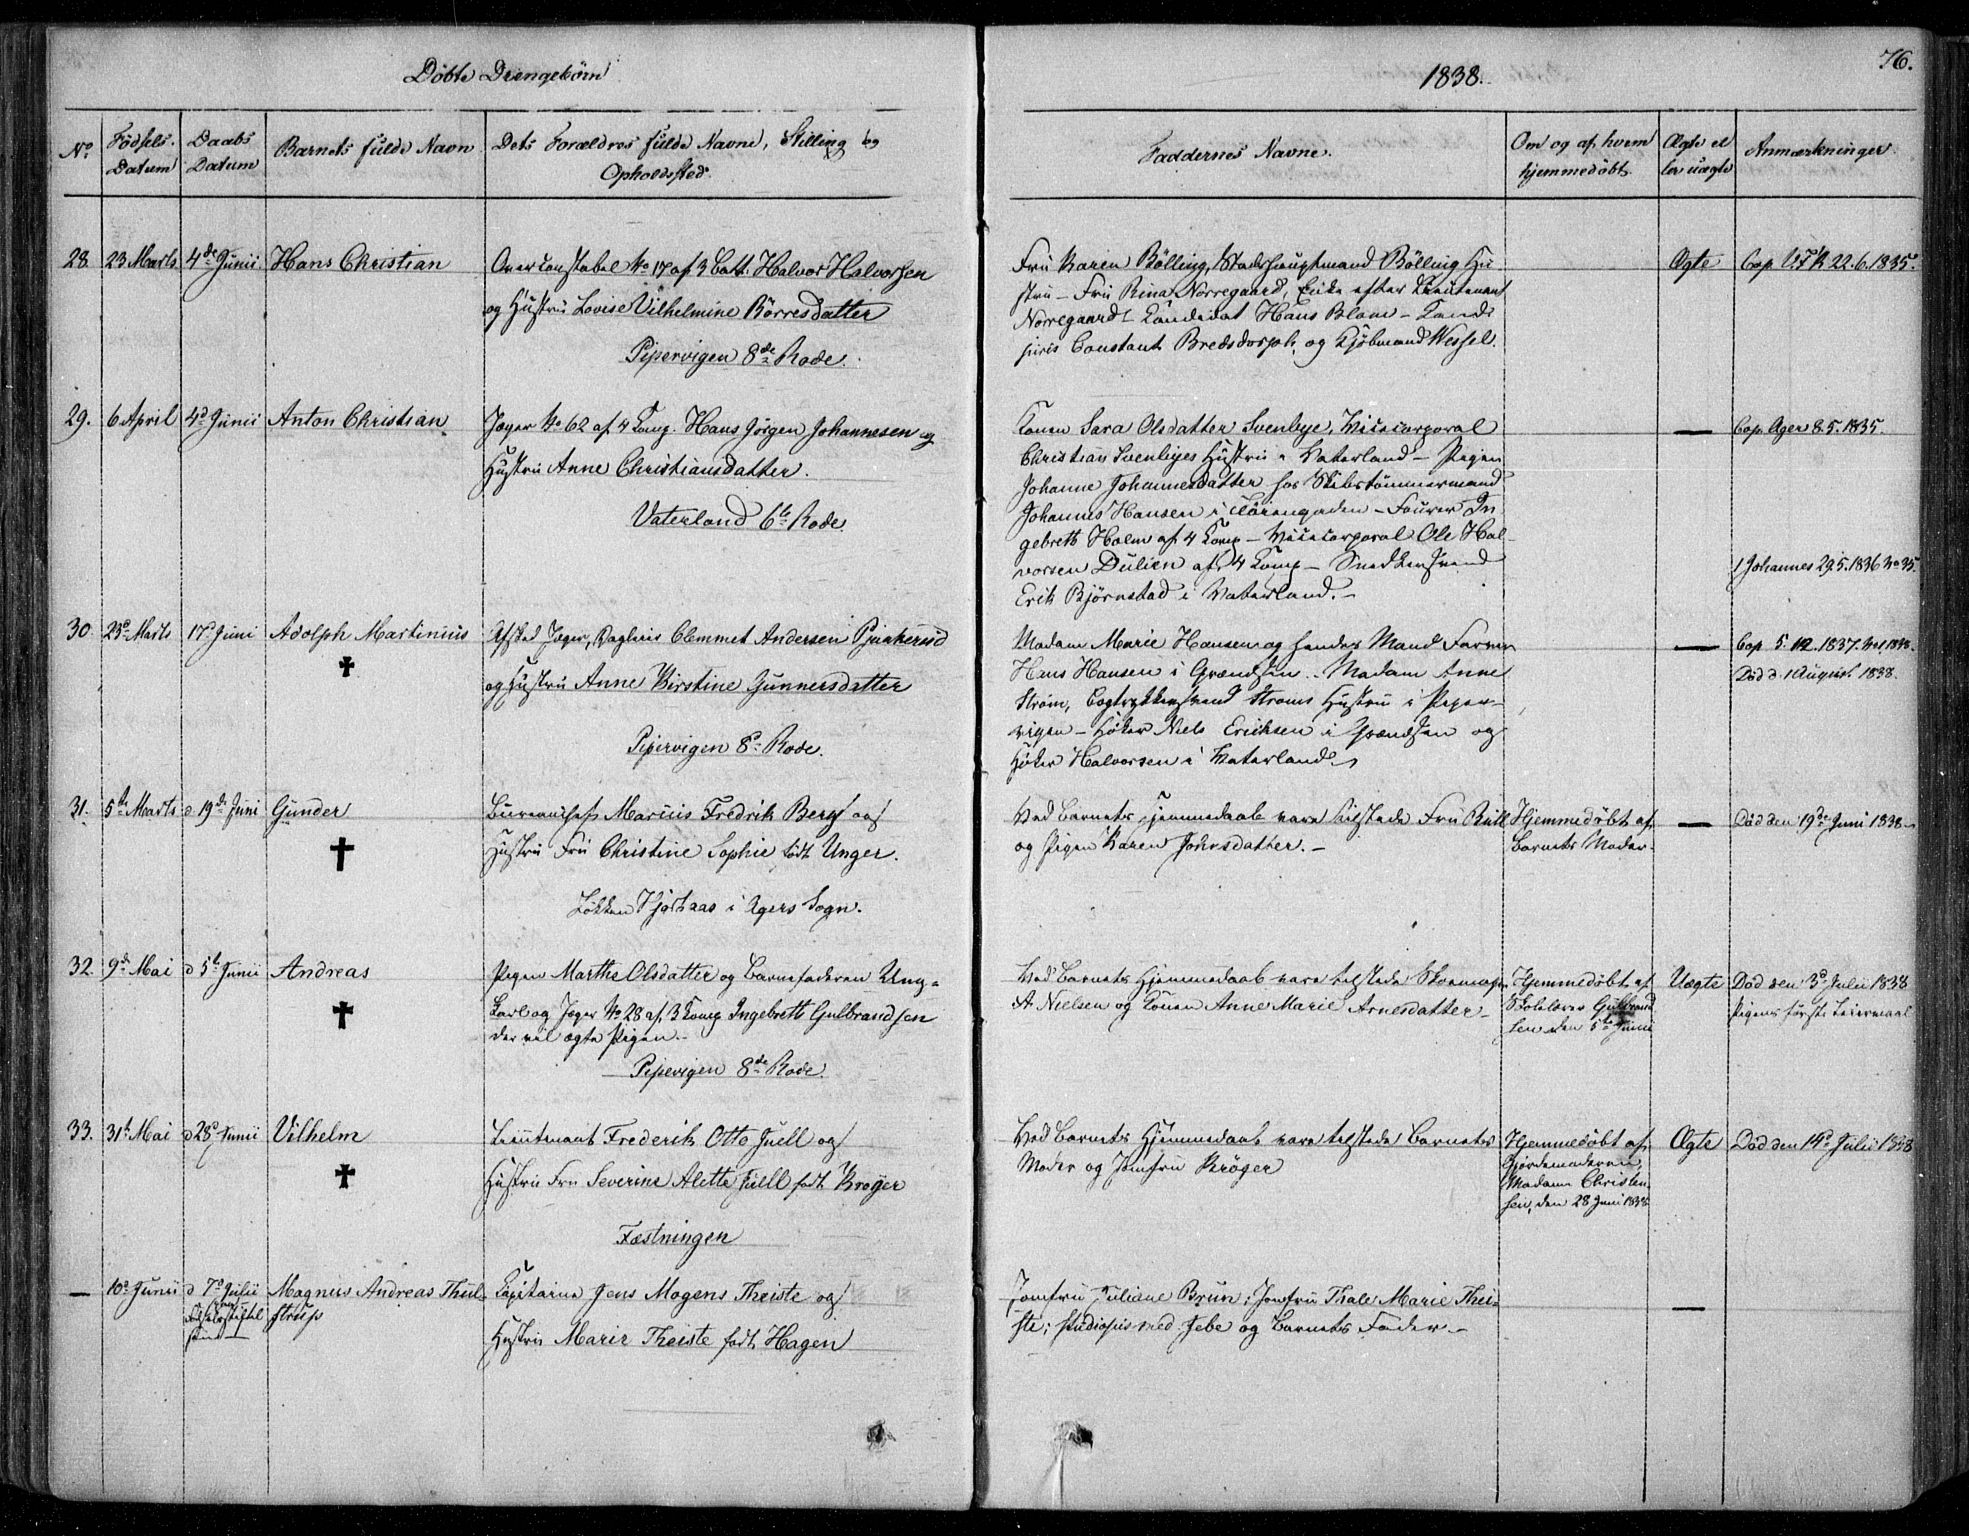 Døbte Drengebørn
1838.
76.
No.
Fødsels-
Datum
Daabs
Datum
Barnets fulde Navn
Dets Forældres fulde Navne, Stilling og
Opholdssted.
Faddernes Navne.
Om og af hvem
hjemmedøbt.
Ægte el
ler uægte
Anmærkninger.
28 23 Marts 4de Junii Hans Christian
Overconstabel No 17 af 3 Batt. Halvor Halvorsen
og Hustru Lovise Vilhelmine Børresdatter
Pipervigen 8de Rode.
Fru Karen Bølling, Stadshauptmand Bølling Hu
stru – Fru Rina Nørregaard, Enke efter Lieutenant
Nørregaard – Candidat Hans Blom – Cand.
juris Constant Bredsdorph, og Kjøbmand Wessel.
Ægte
Cop. V.F.K 22.6.1835.
29. 6 April 4d Junii Anton Christian
Jæger No 62 af 4 Comp. Hans Jørgen Johannesen og
Hustru Anne Christiansdatter.
Vaterland 6te Rode
Konen Sara Olsdatter Svenbye, Vicecorporal
Christian Svenbyes Hustru i Vaterland – Pigen
Johanne Johannesdatter hos Skibstømmermand
Johannes Hansen i – Fourer In
gebreth Holm af 4 Comp – Vicecorporal Ole Hal-
vorsen Dulien af 4 Comp – Snedkersvend
Erik Bjørnstad i Vaterland. –
—
Cop. Ager 8.5.1835.
1 Johannes 29.5.1836 No 35.
30 23d Marts 17d Juni Adolph Martinius
Afsked Jæger, Daglein Clemmet Andersen Pjaakerud
og Hustru Anne Kirstine Gunnersdatter
Pipervigen 8d Rode.
Madam Marie Hansen og hendes Mand Farver
Hans Hansen i Grændsen – Madam Anne
Strøm, Bogtrykkersvend Strøms Hustru i Piper-
vigen – Høker Niels Eriksen i Grændsen og
Høker Halvorsen i Vaterland.
—
Cop 5. 12. 1837.
Død d. 1 August 1838.
31. 5te Marts d 19de Juni Gunder
Bureauchef Marius Fredrik Berg og
Hustru Fru Christine Sophie født Unger.
Løkken i Agers Sogn.
Ved Barnets Hjemmedaab vare tilstede Fru Bull
og Pigen Karen Johnsdatter. –
Hjemmedøbt af
Barnets Moder.
—
Død den 19de Juni 1838
32. 9de Mai d 5t Junii Andreas
Pigen Marthe Olsdatter og Barnefaderen Ung-
karl og Jæger No 28 af 3 Comp Ingebrett Gulbrandsen
der vil ægte Pigen. –
Pipevigen 8de Rode.
Ved Barnets Hjemmedaab vare tilstede Skomager
A Nielsen og Konen Anne Marie Arnesdatter –
Hjemmedøbt af
Skolelærer Gulbrand
sen den 5te Junii
Uægte
Død den 3d Julii 1838
Pigens første Leiermaal
33. 31t Mai d 28d Junii Vilhelm
Lieutnant Frederik Otto Juell og
Hustru Fru Severine Alette Juell født Krøger
Fæstningen
Ved Barnets Hjemmedaab vare tilstede Barnets
Moder og Jomfru Krøger
Hjemmedøbt af
Gjordemoderen
Madam Christen-
sen, den 28 Juni 1838
Ægte
Død den 14d Julii 1838
— 10d Junii d 7d Julii Magnus Andreas Thul-
strup
Capitaine Jens Mogens Theiste og
Hustru Marie Theiste født Hagen
Jomfru Juliane Brun; Jomfru Thale Marie Thei-
ste; Studiosus med. Jebe og Barnets Fader. –
—